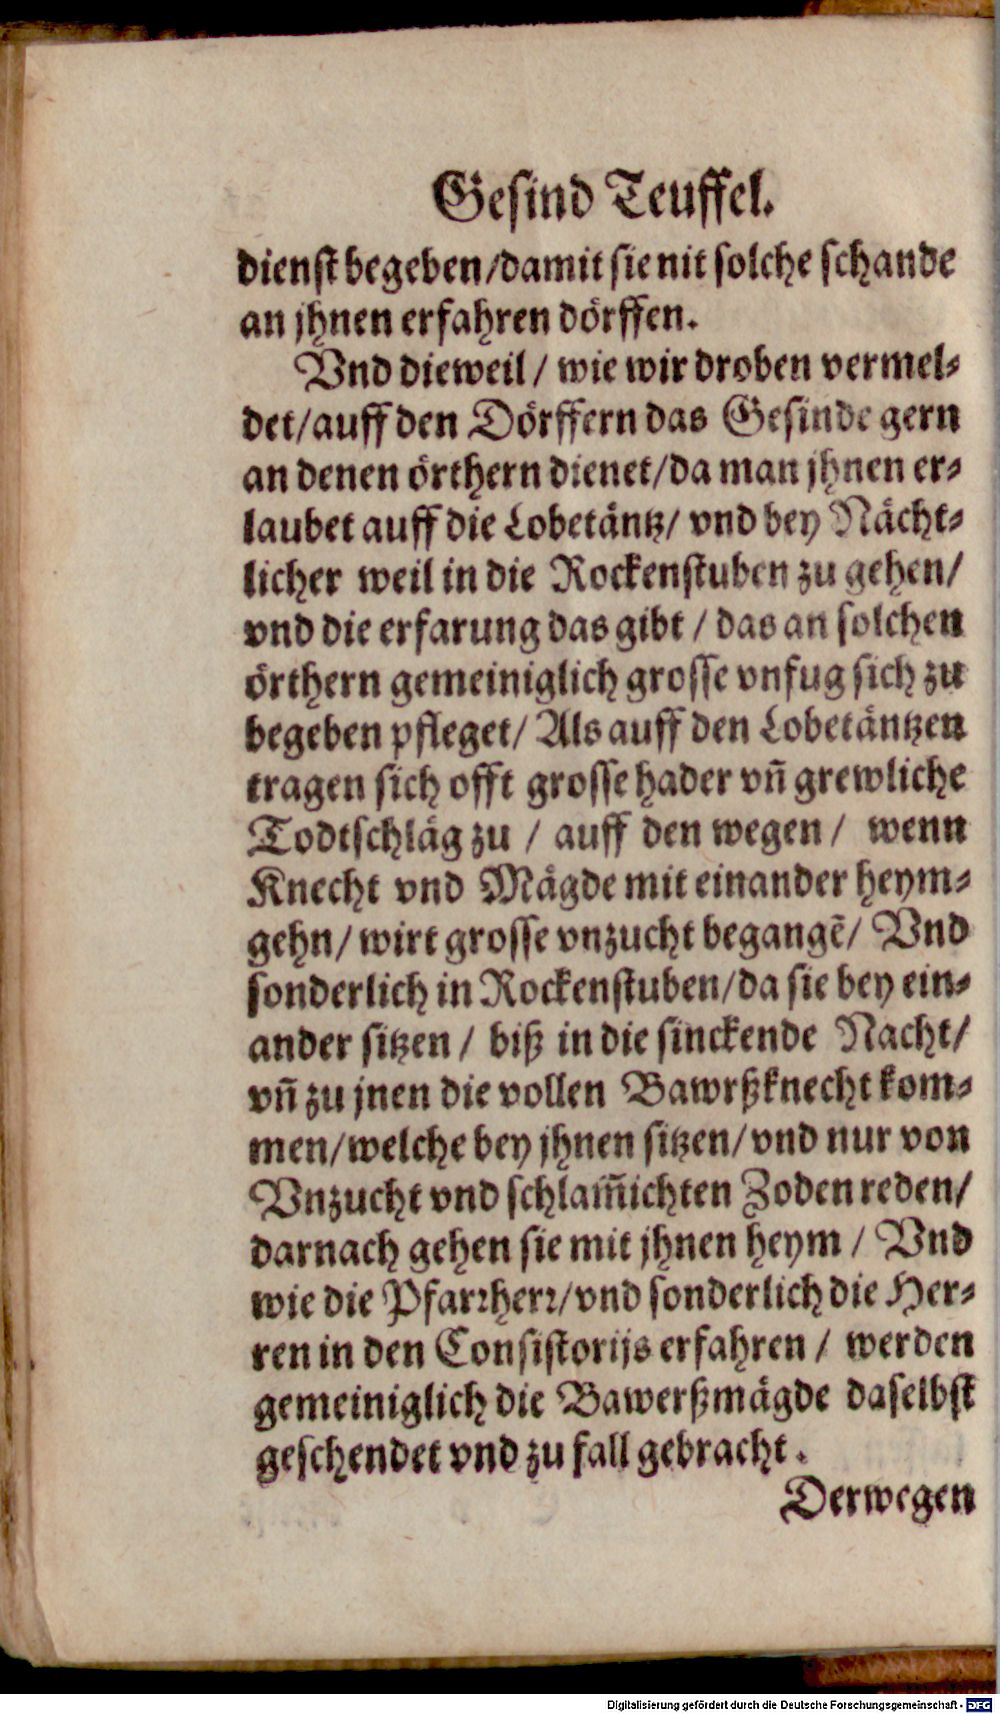 Gesind Teuffel.
dienst begeben/damit sie nit solche schande
an jhnen erfahren dörffen.
Vnd dieweil / wie wir droben vermel⸗
det/auff den Dörffern das Gesinde gern
an denen örthern dienet/da man jhnen er⸗
laubet auff die Lobetäntz/ vnd bey Nächt⸗
licher weil in die Rockenstuben zu gehen/
vnd die erfarung das gibt / das an solchen
örthern gemeiniglich grosse vnfug sich zu
begeben pfleget/ Als auff den Lobetäntzen
tragen sich offt grosse hader vñ grewliche
Todtschläg zu / auff den wegen / wenn
Knecht vnd Mägde mit einander heym⸗
gehn/ wirt grosse vnzucht begangẽ/ Vnd
sonderlich in Rockenstuben/da sie bey ein⸗
ander sitzen / biß in die sinckende Nacht/
vñ zu jnen die vollen Bawrßknecht kom⸗
men/welche bey jhnen sitzen/vnd nur von
Vnzucht vnd schlam̃ichten Zoden reden/
darnach gehen sie mit jhnen heym / Vnd
wie die Pfarꝛherꝛ/vnd sonderlich die Her⸗
ren in den Consistorijs erfahren / werden
gemeiniglich die Bawerßmägde daselbst
geschendet vnd zu fall gebracht.
Derwegen
Digitalisierung gefördert durch die Deutsche Forschungsgemeinschaft - DFG